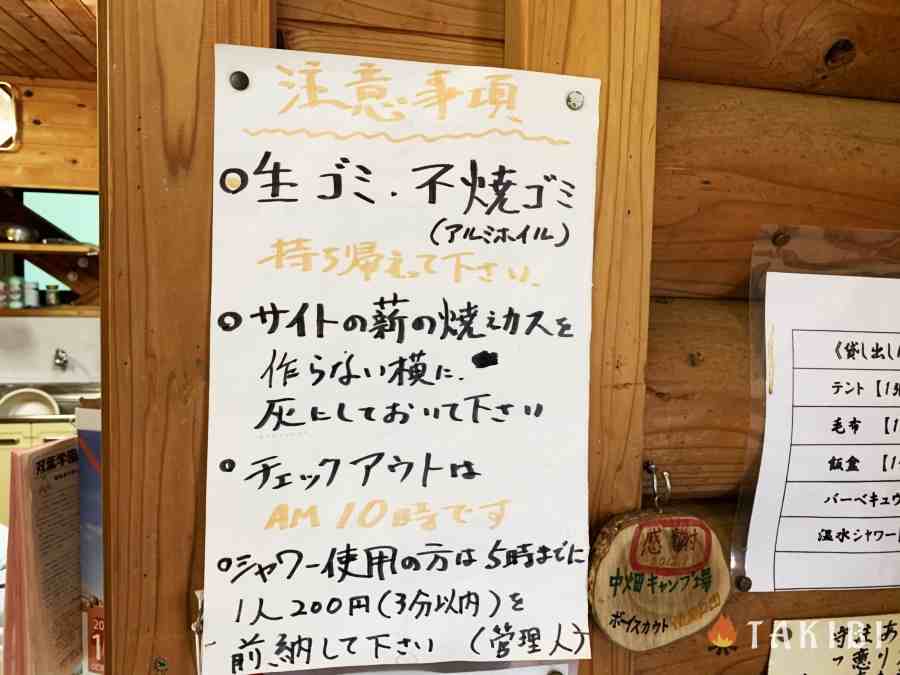 注意事項
○生ゴミ.不焼ゴミ
(アルミホイル)
持ち帰えって下さい.
○サイトの薪の焼えカスを
作らない横に.
灰にしておいて下さい
○チェックアウトは
AM 10時です
○シャワー使用の方は5時までに
1人200円(3分以内)を
前納して下さい (管理人)
《貸し出し
テント【1
毛布 【1
飯盒 【1
バーベキュ
温水シャワー
感謝
中畑キャンプ場
ボーイスカウト
双葉学園
TAKIBI